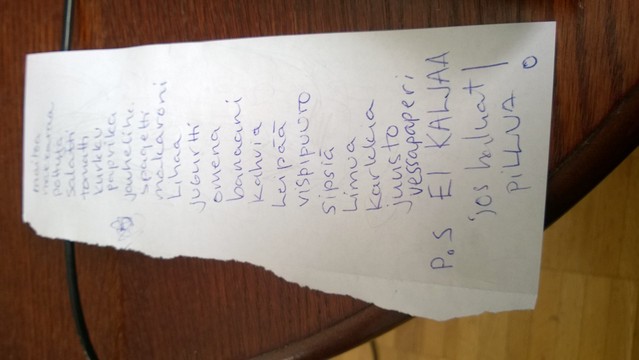 maitoa
salatti
tomatti
kurkku
paprika
spagetti
makaroni
Lihaa
jugurtti
omena
banaani
kahvia
Leipää
vispipuuro
sipsiä
Limua
karkkia
juusto
vessapaperi
P.S EI KALJAA
jos haluat
piLLUA!